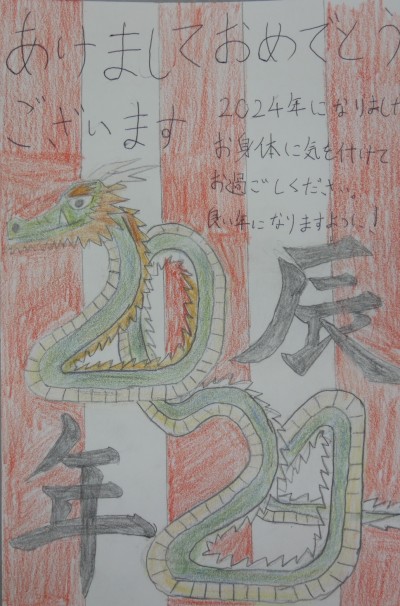 あけましておめでとう
ございます
2024年になりました
お身体に気を付けて
お過ごしください。
良い年になりますように!
辰
年
2024